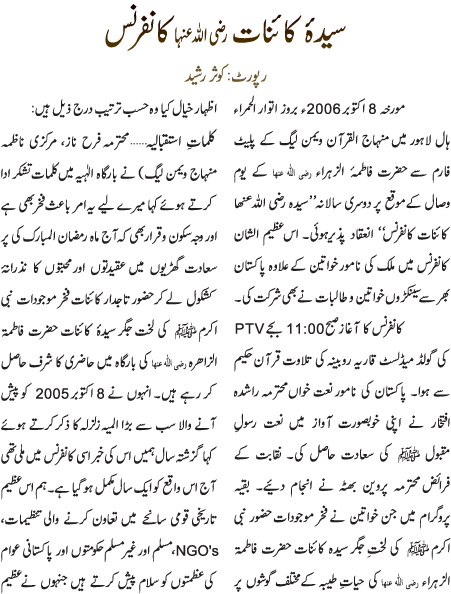 سیدۂ کائنات رضی اللہ عنہا کانفرنس
رپورٹ: کوثر رشید
مورخہ 8 اکتوبر 2006ء بروز اتوار الحمراء
ہال لاہور میں منہاج القرآن ویمن لیگ کے پلیٹ
فارم سے حضرت فاطمۃ الزہراء رضی اللہ عنہا کے یوم
وصال کے موقع پر دوسری سالانہ ’’سیدہ رضی اللہ عنھا
کائنات کانفرنس‘‘ انعقاد پذیر ہوئی۔ اس عظیم الشان
کانفرنس میں ملک کی نامور خواتین کے علاوہ پاکستان
بھر سے سینکڑوں خواتین و طالبات نے بھی شرکت کی۔
کانفرنس کا آغاز صبح 11:00 بجے PTV
کی گولڈ میڈلسٹ قاریہ روبینہ کی تلاوت قرآن حکیم
سے ہوا۔ پاکستان کی نامور نعت خواں محترمہ راشدہ
افتخار نے اپنی خوبصورت آواز میں نعت رسولِ
مقبول ﷺ کی سعادت حاصل کی۔ نقابت کے
فرائض محترمہ پروین بھٹہ نے انجام دیئے۔ بقیہ
پروگرام میں جن خواتین نے فخر موجودات حضور نبی
اکرم ﷺ کی لختِ جگر سیدہ کائنات حضرت فاطمۃ
الزہراء رضی اللہ عنہا کی حیاتِ طیبہ کے مختلف گوشوں پر
اظہار خیال کیا وہ حسب ترتیب درج ذیل ہیں:
کلماتِ استقبالیہ......محترمہ فرح ناز، مرکزی ناظمہ
منہاج ویمن لیگ) نے بارگاہ الٰہیہ میں کلمات تشکر ادا
کرتے ہوئے کہا میرے لیے یہ امر باعث فخر بھی ہے
اور وجہ سکون و قرار بھی کہ آج ماہ رمضان المبارک کی پر
سعادت گھڑیوں میں عقیدتوں اور محبتوں کا نذرانۂ
کشکول لے کر حضور تاجدار کائنات فخر موجودات نبی
اکرم ﷺ کی لخت جگر سیدۂ کائنات حضرت فاطمۃ
الزاھرہ رضی اللہ عنہا کی بارگاہ میں حاضری کا شرف حاصل
کر رہے ہیں۔ انہوں نے 8 اکتوبر 2005 کو پیش
آنے والا سب سے بڑا المیہ زلزلہ کا ذکر کرتے ہوئے
کہا گزشتہ سال ہمیں اس کی خبر اسی کانفرنس میں ملی تھی
آج اس واقع کو ایک سال مکمل ہو گیا ہے۔ ہم اس عظیم
تاریخی قومی سانحے میں تعاون کرنے والی تنظیمات،
NGO's، مسلم اور غیر مسلم حکومتوں اور پاکستانی عوام
کی عظمتوں کو سلام پیش کرتے ہیں جنہوں نے عظیم